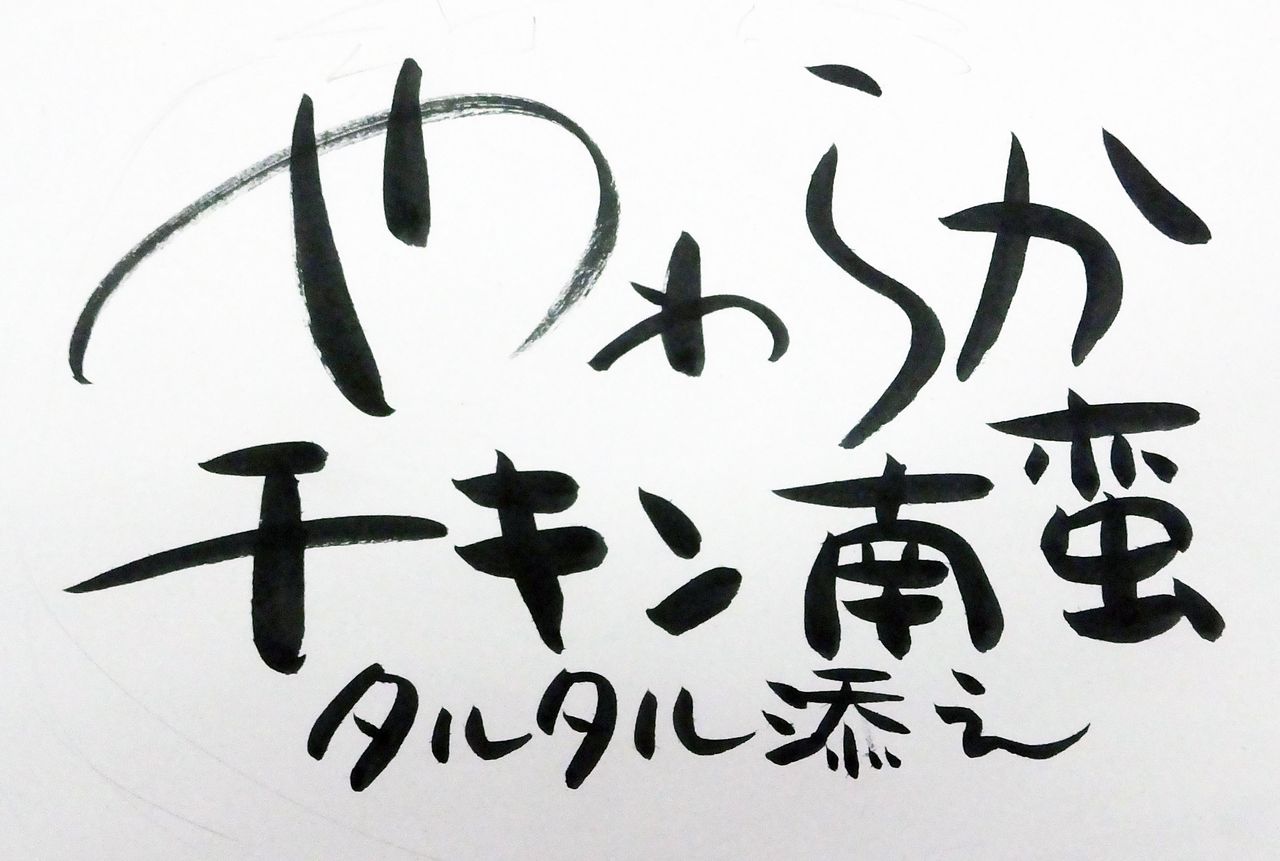 やわらか
チキン南蛮
タルタル添え